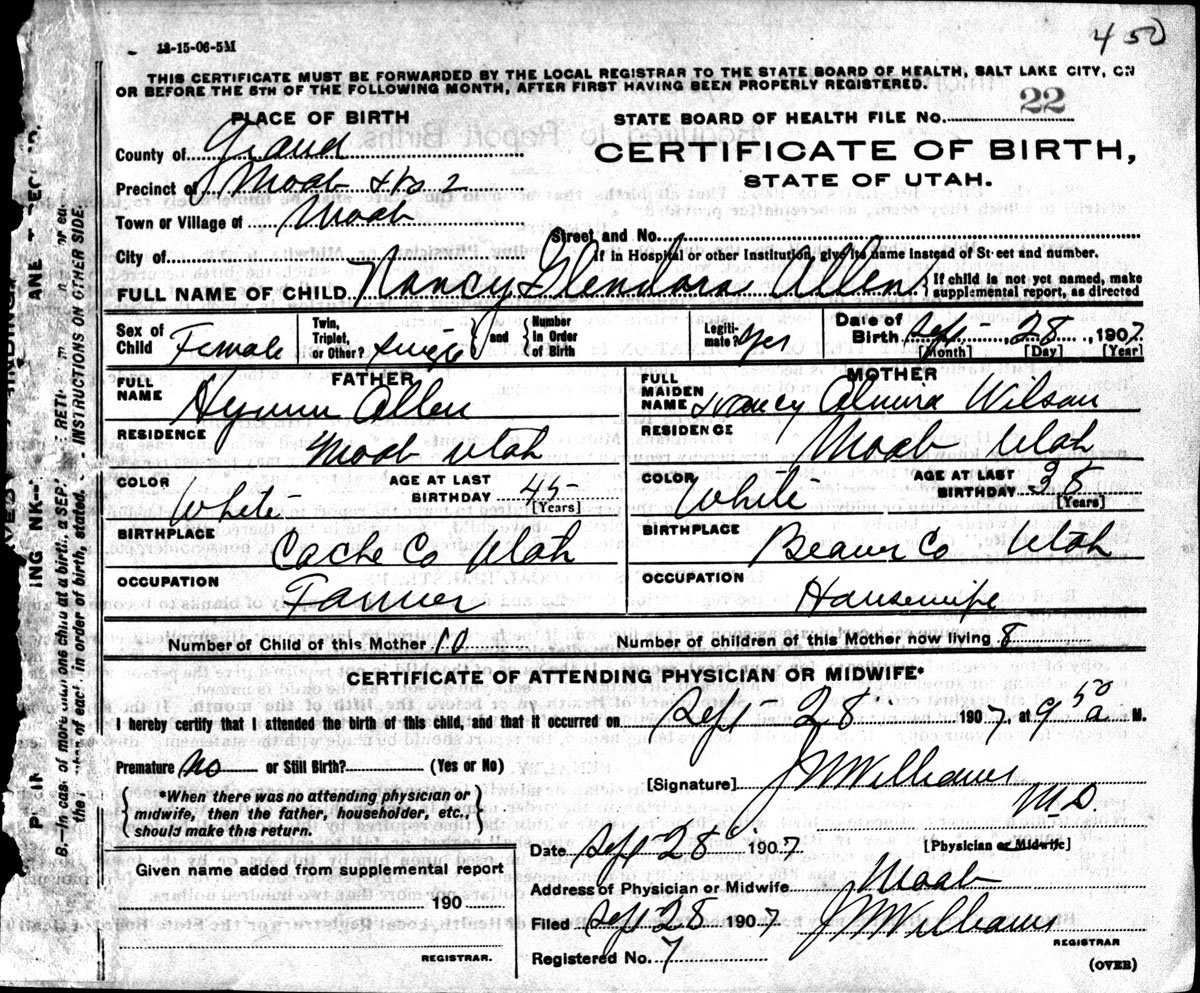 12-15-06-5M
450
THIS CERTIFICATE MUST BE FORWARDED BY THE LOCAL REGISTRAR TO THE STATE BOARD OF HEALTH, SALT LAKE CITY, ON
OR BEFORE THE 5TH OF THE FOLLOWING MONTH, AFTER FIRST HAVING BEEN PROPERLY REGISTERED.
PLACE OF BIRTH
STATE BOARD OF HEALTH FILE NO. 22
County of Grand
CERTIFICATE OF BIRTH,
Precinct of Moab No 2
STATE OF UTAH.
Town or Village of Moab
Street and No.
City of
If in Hospital or other Institution, give its name instead of Street and number.
FULL NAME OF CHILD Nancy Glendora Allen { If child is not yet named, make supplemental report, as directed
Sex of Child Female Twin, Triplet, or Other? single } and { Number in Order of Birth Legitimate? yes Date of Birth Sept 28, 1907.
[Month] [Day] [Year]
FATHER MOTHER
FULL NAME Hyrum Allen FULL MAIDEN NAME Nancy Almira Wilson
RESIDENCE Moab Utah RESIDENCE Moab Utah
COLOR White AGE AT LAST BIRTHDAY 45 [Years] COLOR White AGE AT LAST BIRTHDAY 38 [Years]
BIRTHPLACE Cache Co Utah BIRTHPLACE Beaver Co Utah
OCCUPATION Farmer OCCUPATION Housewife
Number of Child of this Mother 10 Number of children of this Mother now living 8
CERTIFICATE OF ATTENDING PHYSICIAN OR MIDWIFE*
I hereby certify that I attended the birth of this child, and that it occurred on Sept 28 1907, at 9 50 a M.
Premature No or Still Birth? (Yes or No)
[Signature] J W Williams
M D
{ *When there was no attending physician or midwife, then the father, householder, etc., should make this return. }
Date Sep 28 1907 [Physician or Midwife]
Given name added from supplemental report
190
REGISTRAR.
Address of Physician or Midwife Moab
Filed Sep 28 1907 J W Williams
REGISTRAR
Registered No. 7
(OVER)
B.—In case of more than one child at a birth, a SEP RETU
the number of each, in order of birth, stated. INSTRUCTIONS ON OTHER SIDE.